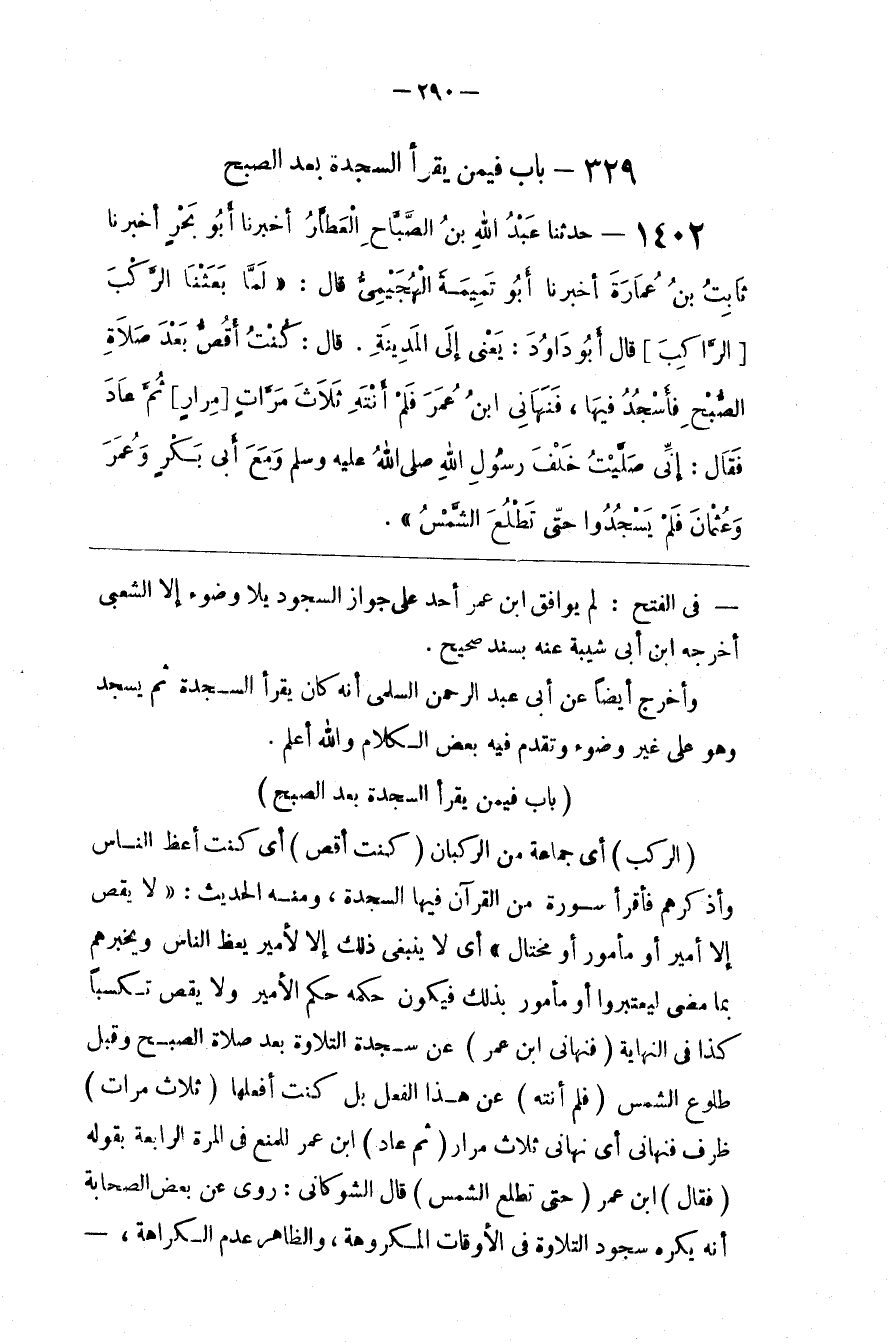 — ٢٩٠ —
٣٢٩ — باب فيمن يقرأ السجدة بعد الصبح
١٤٠٢ — حدثنا عَبْدُ اللهِ بنُ الصَّبَّاحِ الْعَطَّارُ أخبرنا أَبُو بَحْرٍ أخبرنا
ثَابِتُ بنُ عُمَارَةَ أخبرنا أَبُو تَمِيمَةَ الْهُجَيْمِيُّ قال : « لَمَّا بَعَثْنَا الرَّكْبَ
[ الرَّاكِبَ ] قال أَبُو دَاوُدَ : يَعْنى إِلَى المَدِينَةِ . قال : كُنْتُ أَقُصُّ بَعْدَ صَلَاةِ
الصُّبْحِ فَأَسْجُدُ فيهَا ، فَنَهَانِى ابنُ عُمَرَ فَلَمْ أَنْتَهِ ثَلَاثَ مَرَّاتٍ [مِرارٍ] ثُمَّ عَادَ
فَقَال : إِنِّى صَلَّيْتُ خَلْفَ رسُولِ اللهِ صلى اللهُ عليه وسلم وَمَعَ أبى بَكْرٍ وَعُمَرَ
وَعُثْمَانَ فَلَمْ يَسْجُدُوا حتّى تَطْلُعَ الشَّمْسُ » .
— فى الفتح : لم يوافق ابن عمر أحد على جواز السجود بلا وضوء إلا الشعبى
أخرجه ابن أبى شيبة عنه بسند صحيح .
وأخرج أيضاً عن أبى عبد الرحمن السلمى أنه كان يقرأ السجدة ثم يسجد
وهو على غير وضوء وتقدم فيه بعض الكلام والله أعلم .
( باب فيمن يقرأ السجدة بعد الصبح )
( الركب ) أى جماعة من الركبان ( كنت أقص ) أى كنت أعظ الناس
وأذكرهم فأقرأ سورة من القرآن فيها السجدة ، ومنه الحديث : « لا يقص
إلا أمير أو مأمور أو مختال » أى لا ينبغى ذلك إلا لأمير يعظ الناس ويخبرهم
بما مضى ليعتبروا أو مأمور بذلك فيكون حكمه حكم الأمير ولا يقص تكسباً
كذا فى النهاية ( فنهانى ابن عمر ) عن سجدة التلاوة بعد صلاة الصبح وقبل
طلوع الشمس ( فلم أنته ) عن هذا الفعل بل كنت أفعلها ( ثلاث مرات )
ظرف فنهانى أى نهانى ثلاث مرار ( ثم عاد ) ابن عمر للمنع فى المرة الرابعة بقوله
( فقال ) ابن عمر ( حتى تطلع الشمس ) قال الشوكانى : روى عن بعض الصحابة
أنه يكره سجود التلاوة فى الأوقات المكروهة ، والظاهر عدم الكراهة ، —